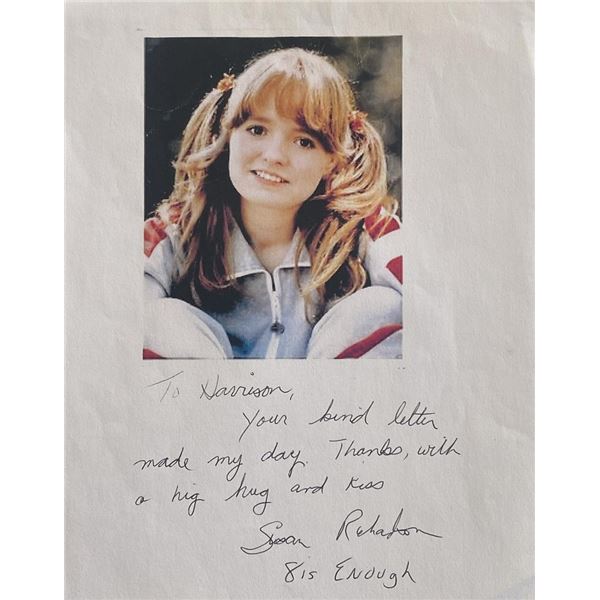 To Harrison,
Your kind letter
made my day. Thanks, with
a big hug and kiss
Susan Richardson
8 is Enough